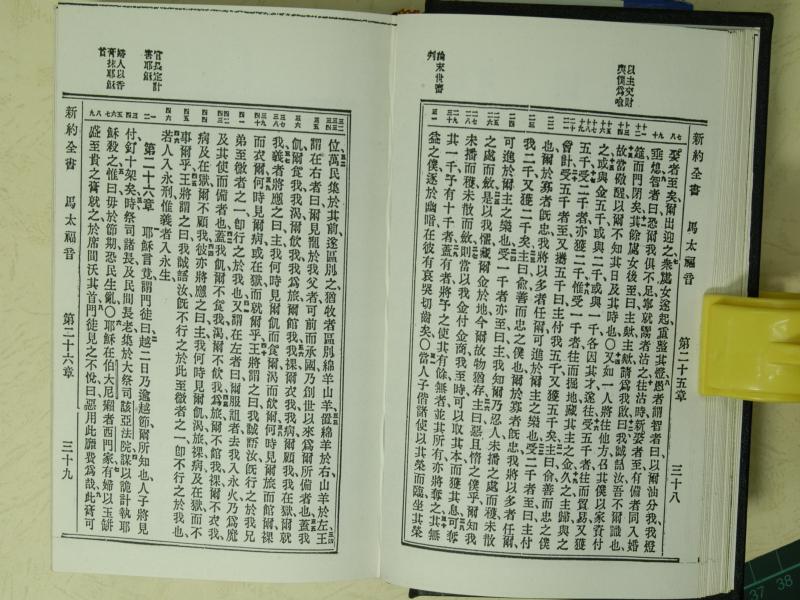 新約全書 馬太福音 第二十五章 三十八
以主交財與僕爲喩
論末世審判
娶者至矣、爾出迎之、衆處女遂起、頂整其燈、愚者謂智者曰、以爾油分我、我燈
垂熄、智者曰、恐爾我俱不足、寧就鬻者沽之、往沽時、新娶者至、有備者同入婚
筵、而門閉矣、其餘處女後至曰、主歟主歟、請爲我啟、曰、我誠語汝、吾不識爾也、
故當儆醒、以爾不知其日及其時也、〇又如一人將往他方、召其僕以家資付
之、或與金五千、或與二千、或與一千、各因其才、遂往、受五千者、往而貿易、又獲
五千、受二千者、亦獲二千、惟受一千者、往而掘地、藏其主之金、久之、主歸與之
會計、受五千者、至、又攜五千曰、主付我五千、又獲五千矣、主曰、俞、善而忠之僕
也、爾於寡者旣忠、我將以多者任爾、可進於爾主之樂也、受二千者至曰、主付
我二千、又獲二千矣、主曰、俞、善而忠之僕也、爾於寡者旣忠、我將以多者任爾、
可進於爾主之樂也、受一千者亦至曰、主、我知爾乃忍人、未播之處而穫、未散
之處而斂、是以我懼、藏爾金於地、今爾故物猶存、主曰、惡且惰之僕乎、爾知我
未播而穫、未散而斂、則當以我金付金商、我至時、可以取其本而獲其息、可奪
其一千、予有十千者、蓋有者將予之、使其有餘、無者並其所有亦將奪之、其無
益之僕、逐於幽暗、在彼有哀哭切齒矣、〇當人子偕諸使、以其榮而臨、坐其榮
新約全書 馬太福音 第二十六章 三十九
官長定計害耶穌
婦人以香膏抹耶穌首
位、萬民集於其前、遂區別之、猶牧者區別綿羊山羊、置綿羊於右、山羊於左、王
謂在右者曰、爾見寵於我父者可前、而承國、乃創世以來、爲爾所備者也、蓋我
飢爾食我、我渴爾飲我、我爲旅爾館我、我裸爾衣我、我病爾顧我、我在獄爾就
我、義者將應之曰、主、我何時見爾飢而食爾、渴而飲爾、何時見爾旅而館爾、裸
而衣爾、何時見爾病、或在獄而就爾乎、王將謂之曰、我誠語汝、旣行之於我兄
弟至微者之一、卽行之於我也、又謂在左者曰、爾服詛者、去我入永火、乃爲魔
及其使而備者也、蓋我飢爾不食我、渴爾不飲我、爲旅爾不館我、裸爾不衣我、
病及在獄、爾不顧我、彼亦將應之曰、主、我何時見爾飢渴旅裸病及在獄、而不
事爾乎、王將謂之曰、我誠語汝、旣不行之於此至微者之一、卽不行之於我也、
若入永刑、惟義者入永生、
第二十六章 耶穌言竟、謂門徒曰、越二日、乃逾越節、爾所知也、人子將見
付釘十架矣、時祭司諸長及民間長老、集於大祭司該亞法院、謀以詭計執耶
穌殺之、惟曰、毋於節期、恐民生亂、〇耶穌在伯大尼、癩者西門家、有婦以玉缾
盛至貴之膏就之、於席間沃其首、門徒見之不悅曰、惡用此靡費爲哉、此膏可
37 38